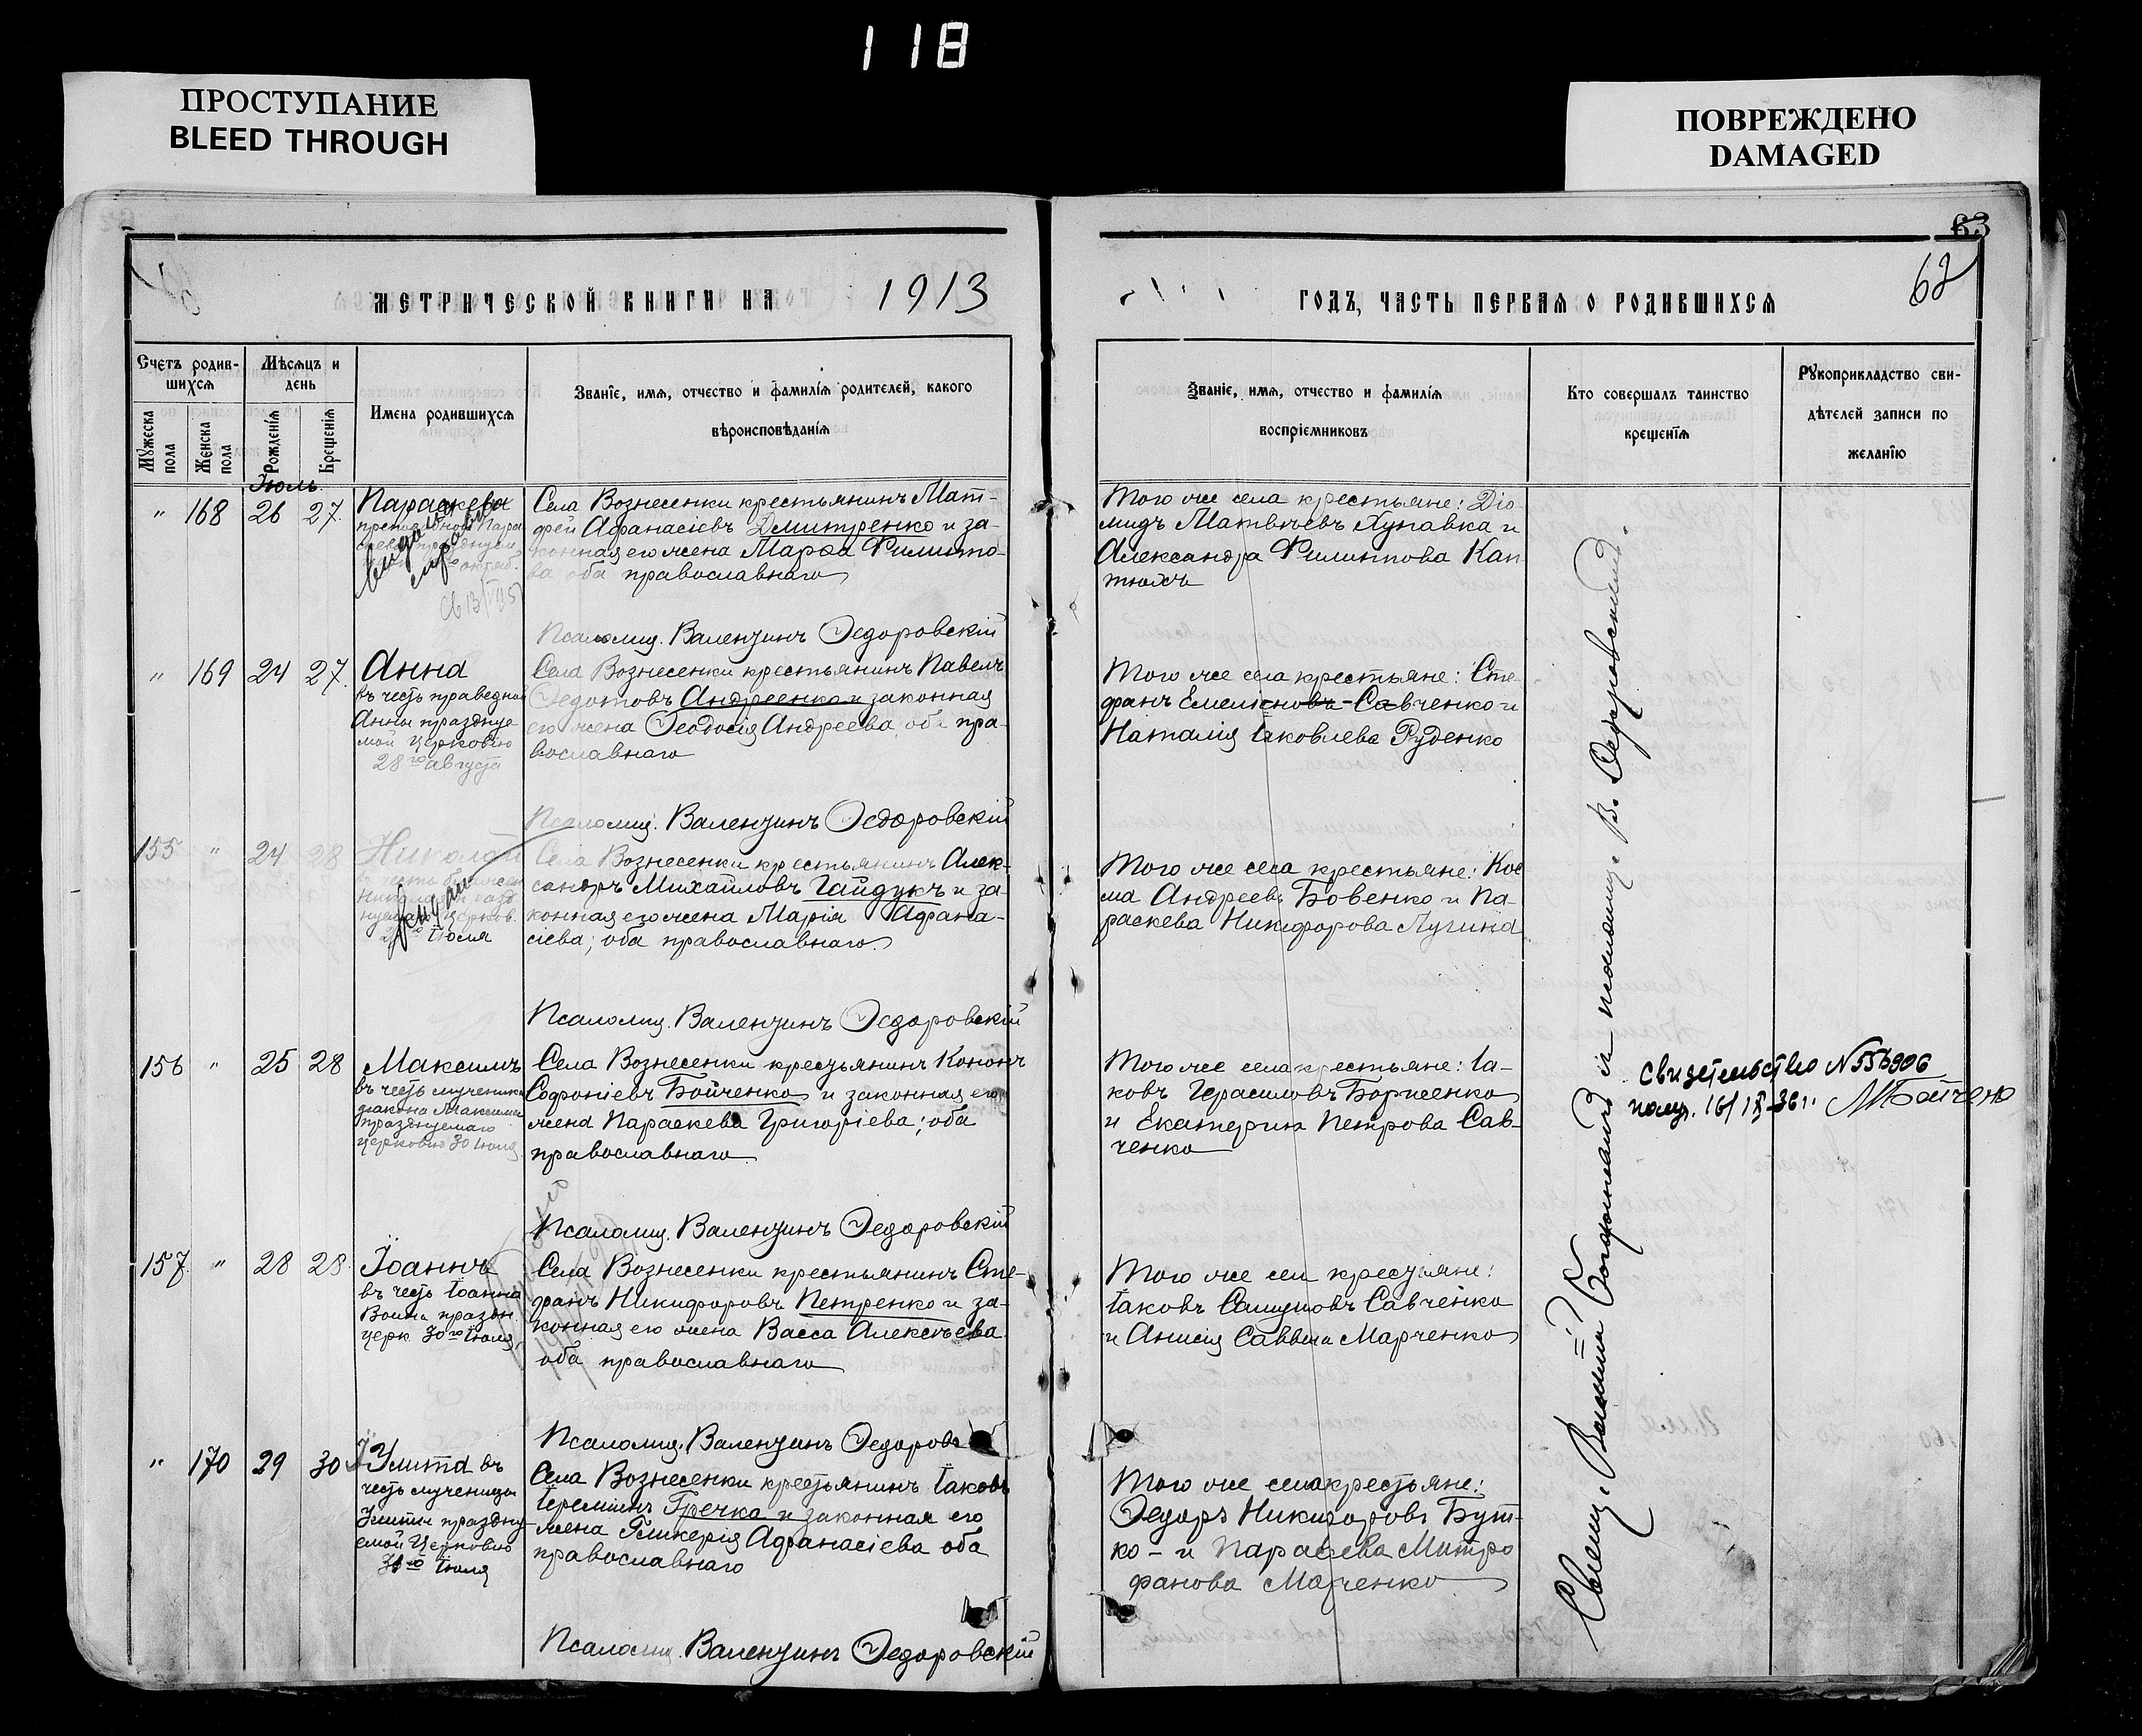 118
ПРОСТУПАНИЕ
BLEED THROUGH
ПОВРЕЖДЕНО
DAMAGED
63
62
МЕТРИЧЕСКОЙ КНИГИ НА 1913
ГОДЪ, ЧАСТЬ ПЕРВАЯ О РОДИВШИХСЯ
Счетъ родив-
шихся
Мужеска пола
Женска пола
Мѣсяцъ и
день
Рожденія
Крещенія
Имена родившихся
Званіе, имя, отчество и фамилія родителей, какого
вѣроисповѣданія
Званіе, имя, отчество и фамилія
воспріемниковъ
Кто совершалъ таинство
крещенія
Рукоприкладство сви-
дѣтелей записи по
желанію
Іюль
" 168 26 27
Параскева
Села Вознесенки крестьянинъ Мат-
фей Афанасіевъ Дмитренко и за-
конная его жена Марѳа Филиппо-
ва оба православнаго
Псаломщ. Валентинъ Ѳедоровскій
Того же села крестьяне: Діо
мидъ Матвѣевъ Хупавка и
Александра Филиппова Кап
тюхъ
" 169 24 27
Анна
въ честь праведной
Анны празднуе
мой церковію
28го августа
Села Вознесенки крестьянинъ Павелъ
Ѳедотовъ Андреенко и законная
его жена Ѳеодосія Андреева, оба пра-
вославнаго
Псаломщ. Валентинъ Ѳедоровскій
Того же села крестьяне: Сте
фанъ Емеліановъ Савченко и
Наталія Іаковлева Руденко
155 " 24 28
Николай
Іюля
Села Вознесенки крестьянинъ Алек-
сандръ Михайловъ Гайдукъ и за-
конная его жена Марія Афана-
сіева; оба православнаго
Псаломщ. Валентинъ Ѳедоровскій
Того же села крестьяне: Кос
ма Андреевъ Бовенко и Па-
раскева Никифорова Лугина
156 " 25 28
Максимъ
въ честь мученика
діакона Максима
празднуемаго
церковію 30 іюля
Села Вознесенки крестьянинъ Кононъ
Софроніевъ Бойченко и законная его
жена Параскева Григоріева; оба
православнаго
Псаломщ. Валентинъ Ѳедоровскій
Того же села крестьяне: Іа-
ковъ Герасимовъ Борженко
и Екатерина Петрова Сав-
ченко
Свидетельство N 556906
получ. 16/IX-36 г. МБойченко
157 " 28 28
Іоаннъ
въ честь Іоанна
Воина праздн
церк 30го Іюля
Села Вознесенки крестьянинъ Сте-
фанъ Никифоровъ Петренко и за-
конная его жена Васса Алексѣева
оба православнаго
Псаломщ. Валентинъ Ѳедоровс
Того же села крестьяне:
Іаковъ Савченко
и Анисія Саввина Марченко
" 170 29 30
Улита въ
честь мученицы
Улиты праздну
емой Церковію
Іюля
Села Вознесенки крестьянинъ Іаковъ
Іереміинъ Гречка и законная его
жена Гликерія Афанасіева оба
православнаго
Псаломщ. Валентинъ Ѳедоровскій
Того же села крестьяне:
Ѳедоръ Никифоровъ Бут-
ко - и Параскева Митро
фанова Марченко